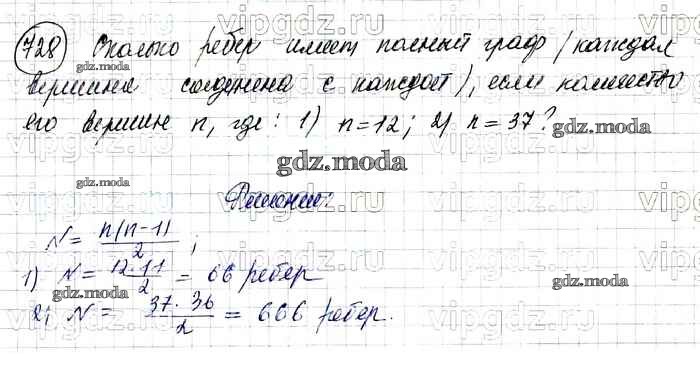 728 Сколько ребер имеет полный граф (каждая
вершина соединена с каждой), если количество
его вершин n, где: 1) n=12; 2) n=37?
Решение:
N = n(n-1)/2 ;
1) N = 12·11/2 = 66 ребер
2) N = 37·36/2 = 666 ребер.
gdz.moda
gdz.moda
gdz.moda
gdz.moda
gdz.moda
gdz.moda
gdz.moda